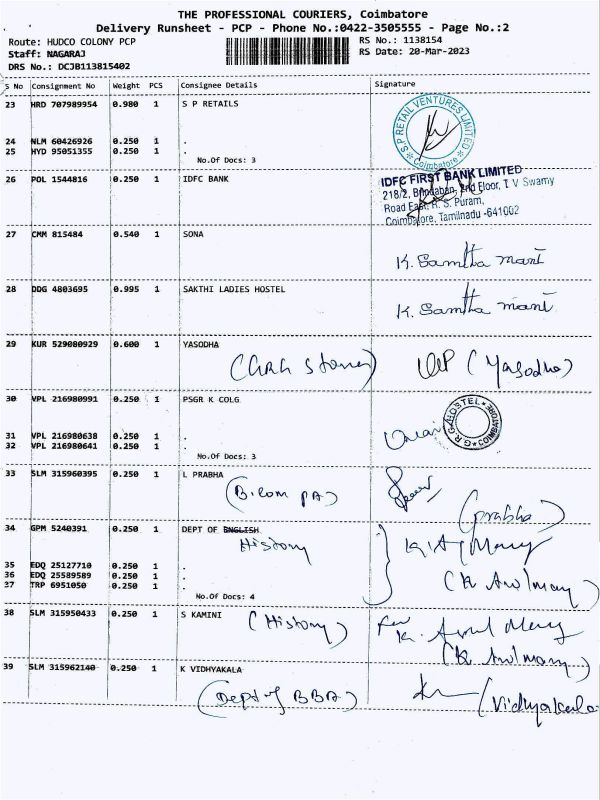 THE PROFESSIONAL COURIERS, Coimbatore
Delivery Runsheet - PCP - Phone No.:0422-3505555 - Page No.:2
Route: HUDCO COLONY PCP
RS No.: 1138154
Staff: NAGARAJ
RS Date: 20-Mar-2023
DRS No.: DCJB113815402
S No Consignment No Weight PCS Consignee Details Signature
23 HRD 707989954 0.980 1 S P RETAILS
S P RETAIL VENTURES LIMITED
Coimbatore
24 NLM 60426926 0.250 1 .
25 HYD 95051355 0.250 1 .
No.Of Docs: 3
26 POL 1544816 0.250 1 IDFC BANK
IDFC FIRST BANK LIMITED
218/2, Brindaban, 2nd Floor, T V Swamy
Road East, R. S. Puram,
Coimbatore, Tamilnadu -641002
27 CMM 815484 0.540 1 SONA
K. Samtha mani
28 DDG 4803695 0.995 1 SAKTHI LADIES HOSTEL
K. Samtha mani
29 KUR 529080929 0.600 1 YASODHA
(Yasodha)
30 VPL 216980991 0.250 1 PSGR K COLG
G.R.G. HOSTEL
COIMBATORE
31 VPL 216980638 0.250 1 .
32 VPL 216980641 0.250 1 .
No.Of Docs: 3
33 SLM 315960395 0.250 1 L PRABHA
(B.com PA)
(prabha)
34 GPM 5240391 0.250 1 DEPT OF ENGLISH
History
35 EDQ 25127710 0.250 1 .
36 EDQ 25589589 0.250 1 .
37 TRP 6951050 0.250 1 .
No.Of Docs: 4
(K Arulmary)
38 SLM 315950433 0.250 1 S KAMINI
(History)
For K. Arul Mary
(K Arulmary)
39 SLM 315962140 0.250 1 K VIDHYAKALA
(Dept of BBA)
(Vidhyakala